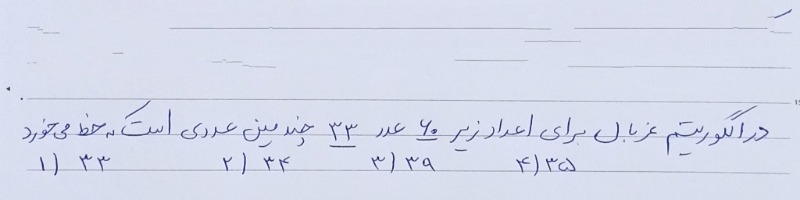 در الگوریتم غربال برای اعداد زیر ۶۰ عدد ۳۳ چندمین عددی است که خط می‌خورد
۱) ۳۳ ۲) ۳۴ ۳) ۳۹ ۴) ۳۵